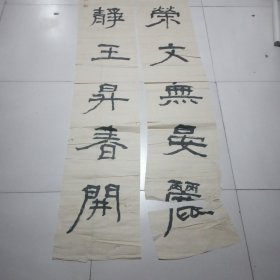 榮文無晏麗
靜王昇春開